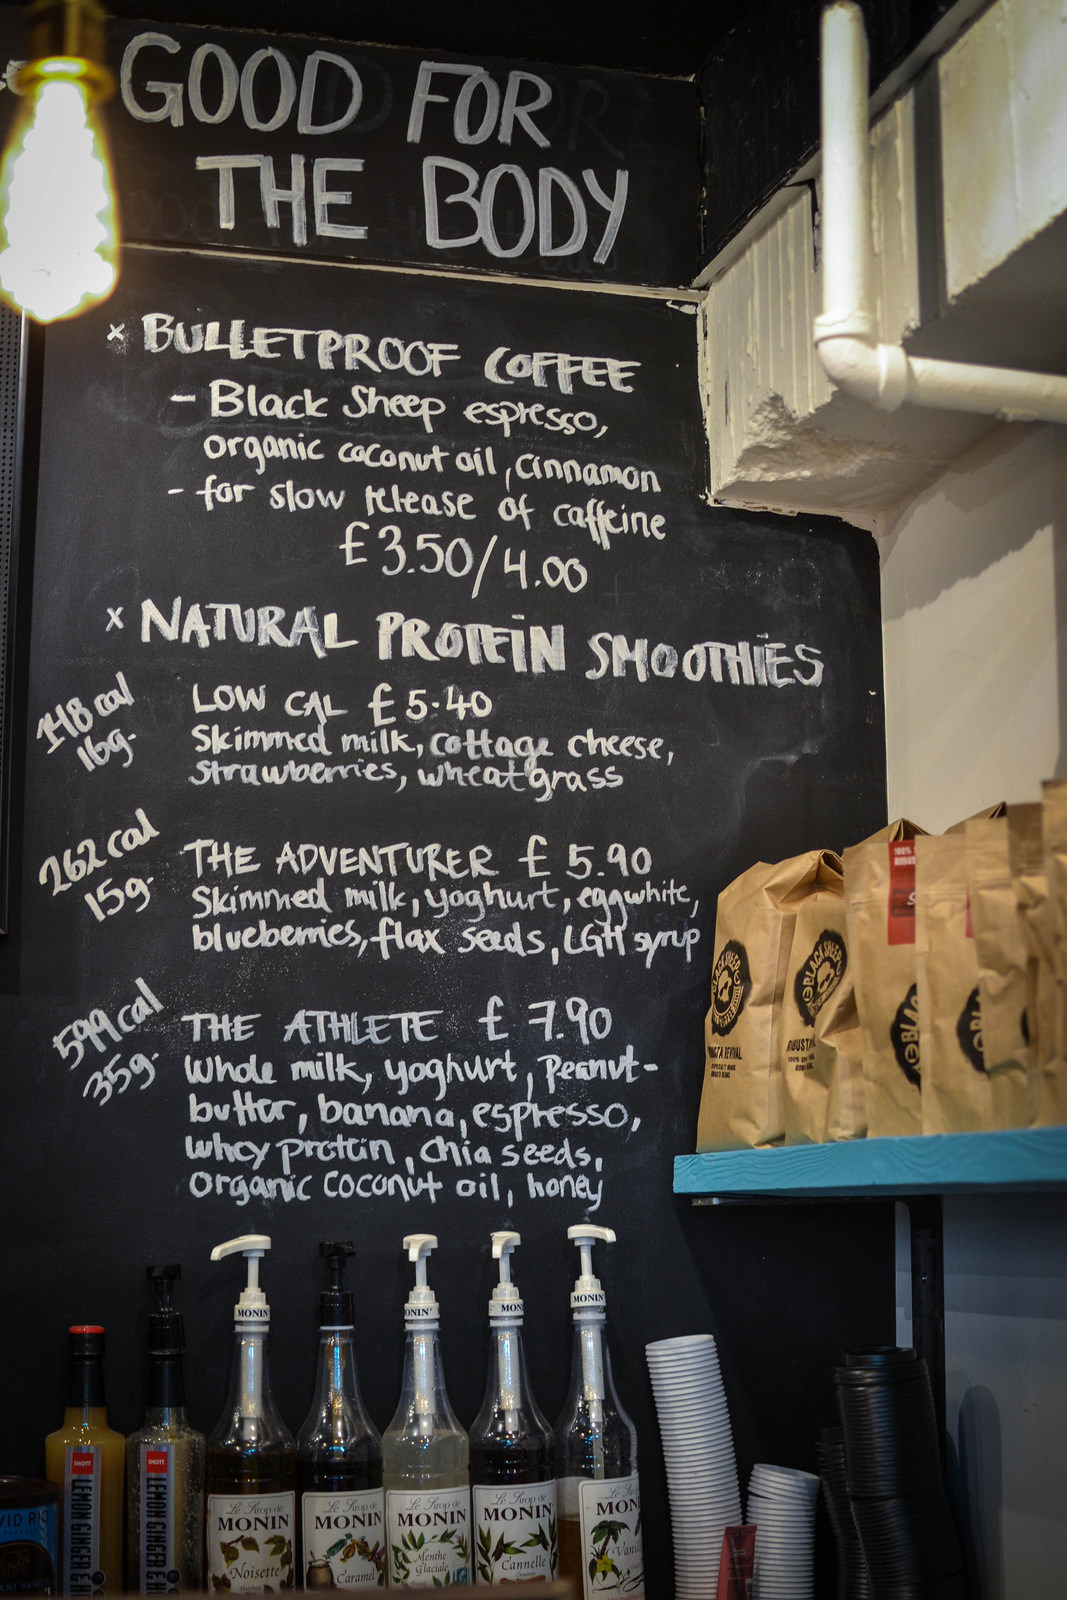 GOOD FOR
THE BODY
x BULLETPROOF COFFEE
- Black Sheep espresso,
organic coconut oil, cinnamon
- for slow release of caffeine
£3.50/4.00
x NATURAL PROTEIN SMOOTHIES
148 cal
16g.
LOW CAL £5.40
Skimmed milk, cottage cheese,
strawberries, wheatgrass
262 cal
15g.
THE ADVENTURER £5.90
Skimmed milk, yoghurt, eggwhite,
blueberries, flax seeds, LGH syrup
599 cal
35g.
THE ATHLETE £7.90
Whole milk, yoghurt, Peanut-
butter, banana, espresso,
whey protein, chia seeds,
Organic coconut oil, honey
BLACK SHEEP
COFFEE
REVIVAL
BLACK SHEEP
100%
MONIN
MONIN
MONIN
MONIN
SHOTT
LEMON GINGER
SHOTT
LEMON GINGER
Le Sirop de
MONIN
Noisette
Le Sirop de
MONIN
Caramel
Le Sirop de
MONIN
Menthe
Glaciale
Le Sirop de
MONIN
Cannelle
Le Sirop de
MON
Vanil
VID RIO